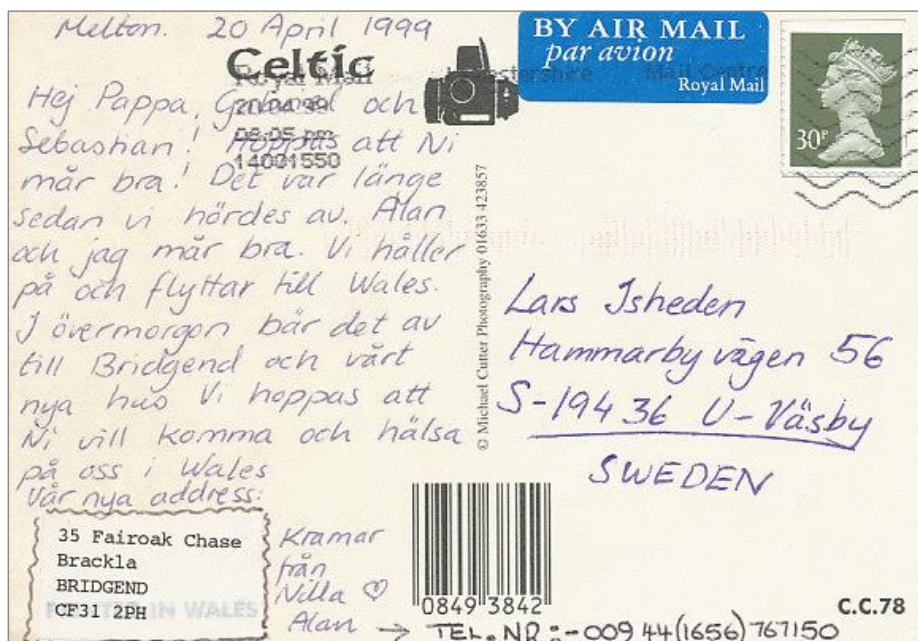 Melton. 20 April 1999
Celtic
Royal Mail
20.04.99
08:05 pm
14001550
Mail Centre
BY AIR MAIL
par avion
Royal Mail
30P
Hej Pappa, och
Sebastian! Hoppas att Ni
mår bra! Det var länge
sedan vi hördes av. Alan
och jag mår bra. Vi håller
på och flyttar till Wales.
I övermorgon bär det av
till Bridgend och vårt
nya hus Vi hoppas att
Ni vill komma och hälsa
på oss i Wales
Vår nya address:
35 Fairoak Chase
Brackla
BRIDGEND
CF31 2PH
IN WALES
Kramar
från
Nilla ♡
Alan → TEL.NR:-009 44(1656) 767150
© Michael Cutter Photography 01633 423857
Lars Isheden
Hammarbyvägen 56
S-194 36 U-Väsby
SWEDEN
0849 3842
C.C.78